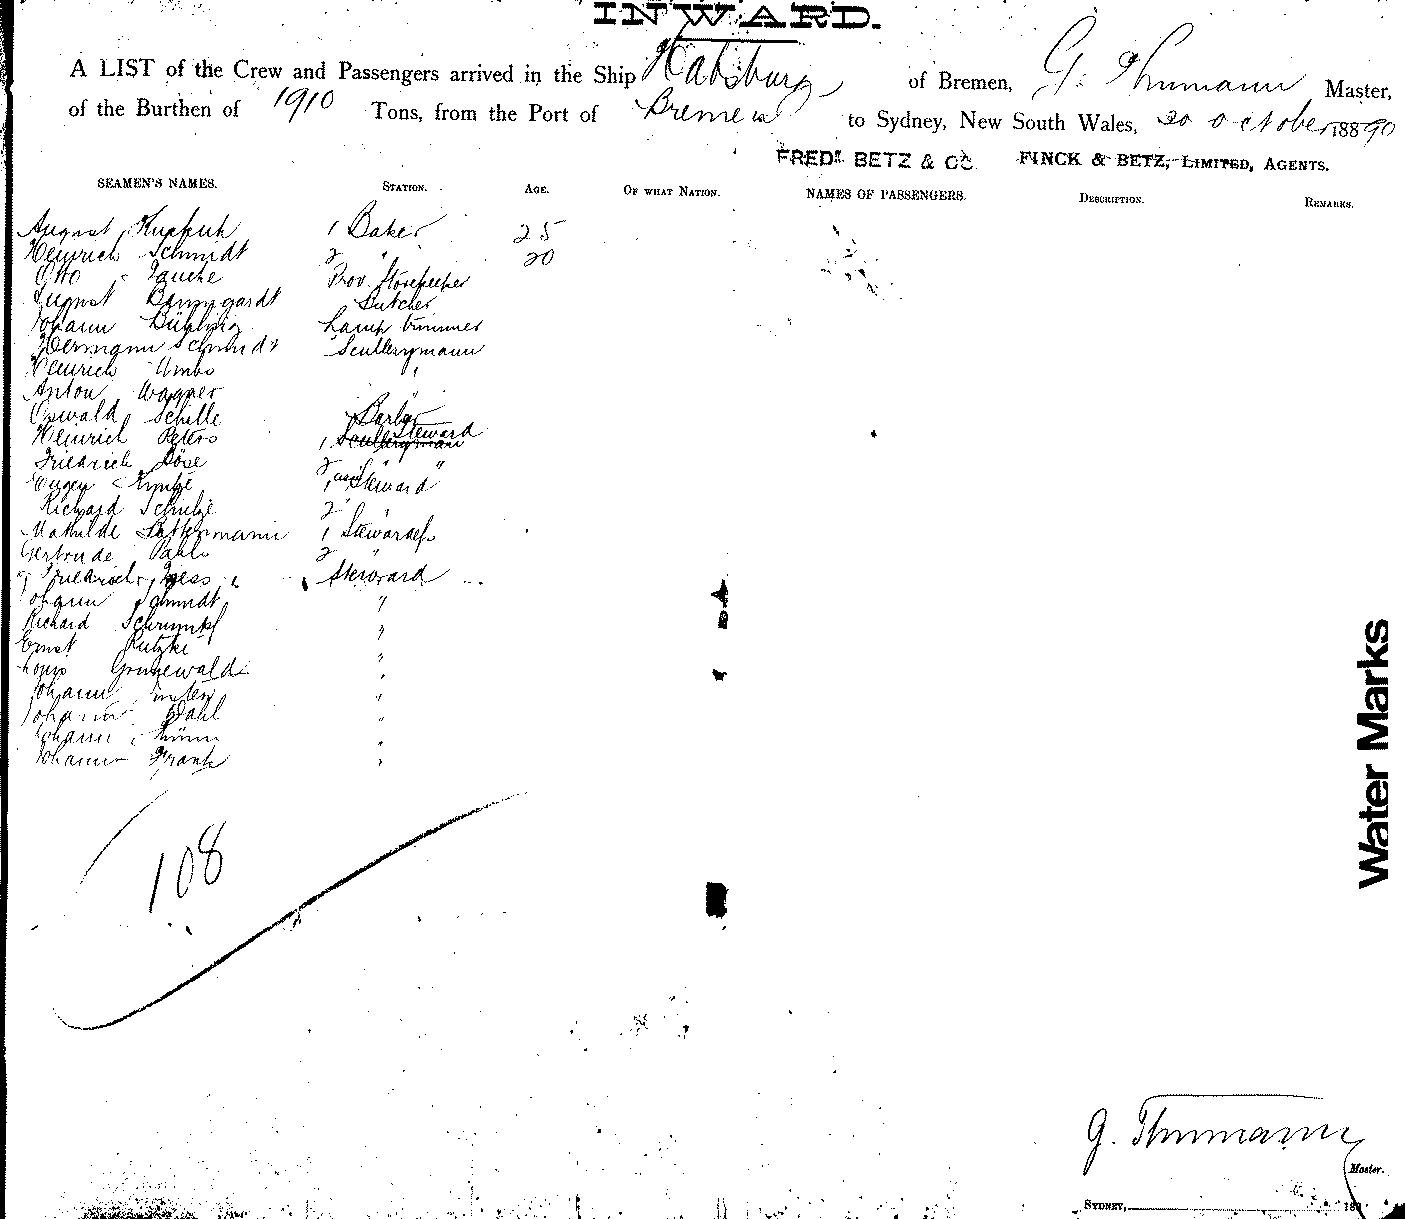 INWARD.
A LIST of the Crew and Passengers arrived in the Ship Habsburg of Bremen, G. Thumann Master,
of the Burthen of 1910 Tons, from the Port of Bremen to Sydney, New South Wales, 20 October 1890
FREDK BETZ & CO. FINCK & BETZ, LIMITED, AGENTS.
SEAMEN'S NAMES. STATION. AGE. OF WHAT NATION. NAMES OF PASSENGERS. DESCRIPTION. REMARKS.
August 1 Baker 25
Heinrich Schmidt 2 " 20
Otto Prov. Storekeeper
August Baumgardt Butcher
Johann Lamp trimmer
Hermann Schmidt Scullerymann
Heinrich "
Anton Wagner "
Oswald Schille Barber
Heinrich Peters 1 Scullerymann Steward
Friedrich Böse 2 " "
Eugen 1 asst Steward
Richard Schulze 2 "
Mathilde 1 Stewardess
Gertrude 2 "
Friedrich Steward
Johann Schmidt "
Richard "
Ernst "
Louis Grunewald "
Johann "
Johann Dahl "
Johann "
Johann Frank "
108
Water Marks
G. Thumann
Master.
SYDNEY, 188